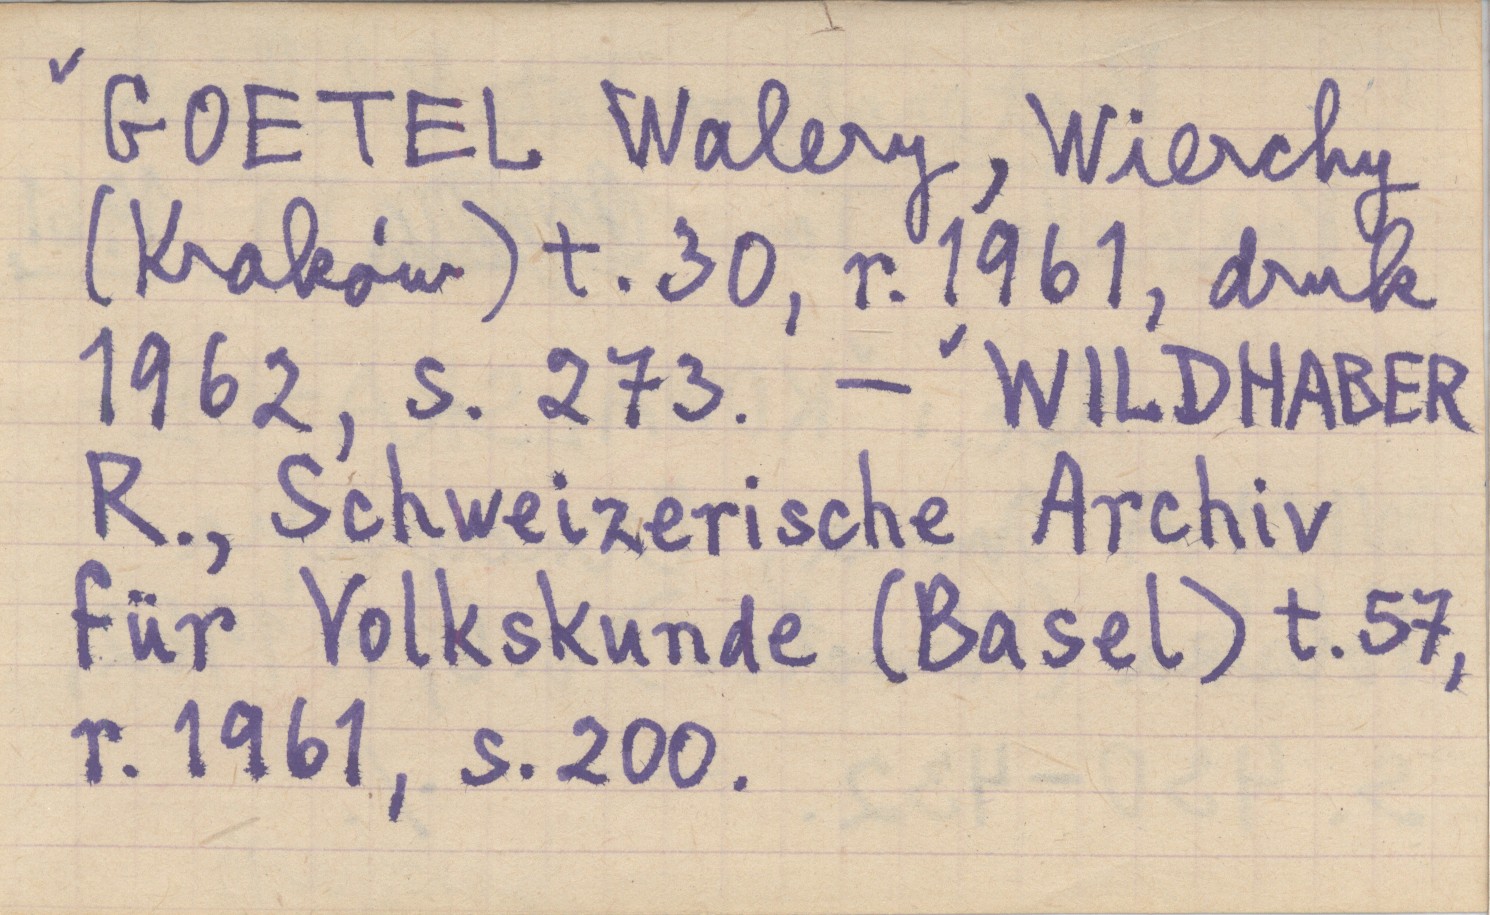 ✓ GOETEL Walery, Wierchy
(Kraków) t. 30, r. 1961, druk
1962, s. 273. — ✓ WILDHABER
R., Schweizerische Archiv
für Volkskunde (Basel) t. 57,
r. 1961, s. 200.